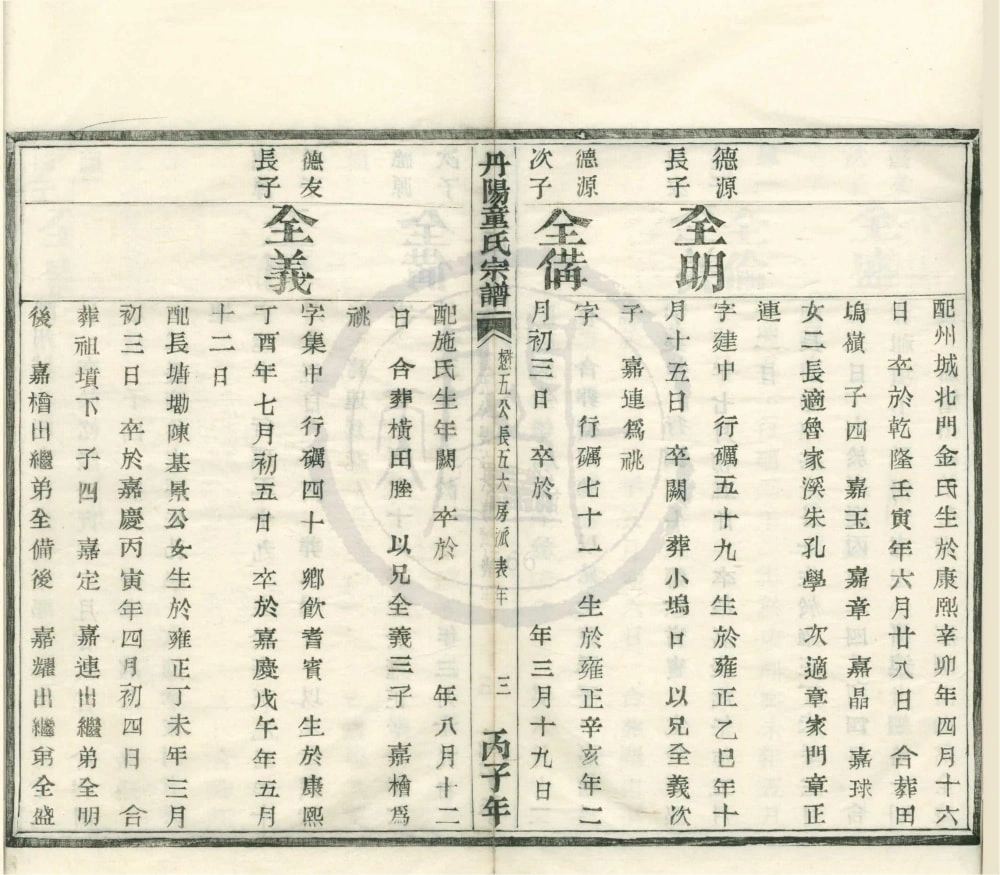 配州城北門金氏生於康熙辛卯年四月十六
日 卒於乾隆壬寅年六月廿八日 合葬田
塢嶺 子四 嘉玉 嘉章 嘉晶 嘉球
女二長適魯家溪朱孔學 次適章家門章正
連
德源
長子
全明
字建中 行礪五十九生於雍正乙巳年十
月十五日 卒闕 葬小塢口 以兄全義次
子 嘉連為祧
德源
次子
全備
字 行礪七十一 生於雍正辛亥年二
月初三日 卒於 年三月十九日
丹陽童氏宗譜
懋五公長五六房派表年
三
丙子年
配施氏生年闕 卒於 年八月十二
日 合葬橫田塍 以兄全義三子 嘉檜為
祧
德友
長子
全義
字集中 行礪四十鄉飲耆賓以 生於康熙
丁酉年七月初五日 卒於嘉慶戊午年五月
十二日
配長塘塥陳基景公女生於雍正丁未年三月
初三日 卒於嘉慶丙寅年四月初四日 合
葬祖墳下 子四 嘉定 嘉連出繼弟全明
後 嘉檜出繼弟全備後 嘉耀出繼弟全盛